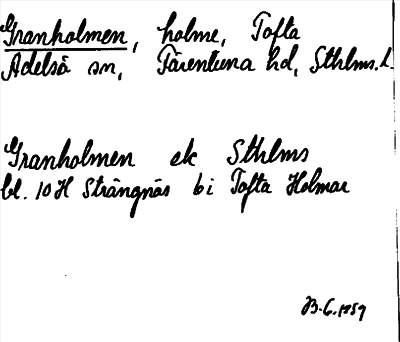 Granholmen, holme, Tofta
Adelsö sn, Färentuna hd, Sthlms. l.
Granholmen ek Sthlms
bl. 10H Strängnäs bi Tofta Holmar
B. G. 1959